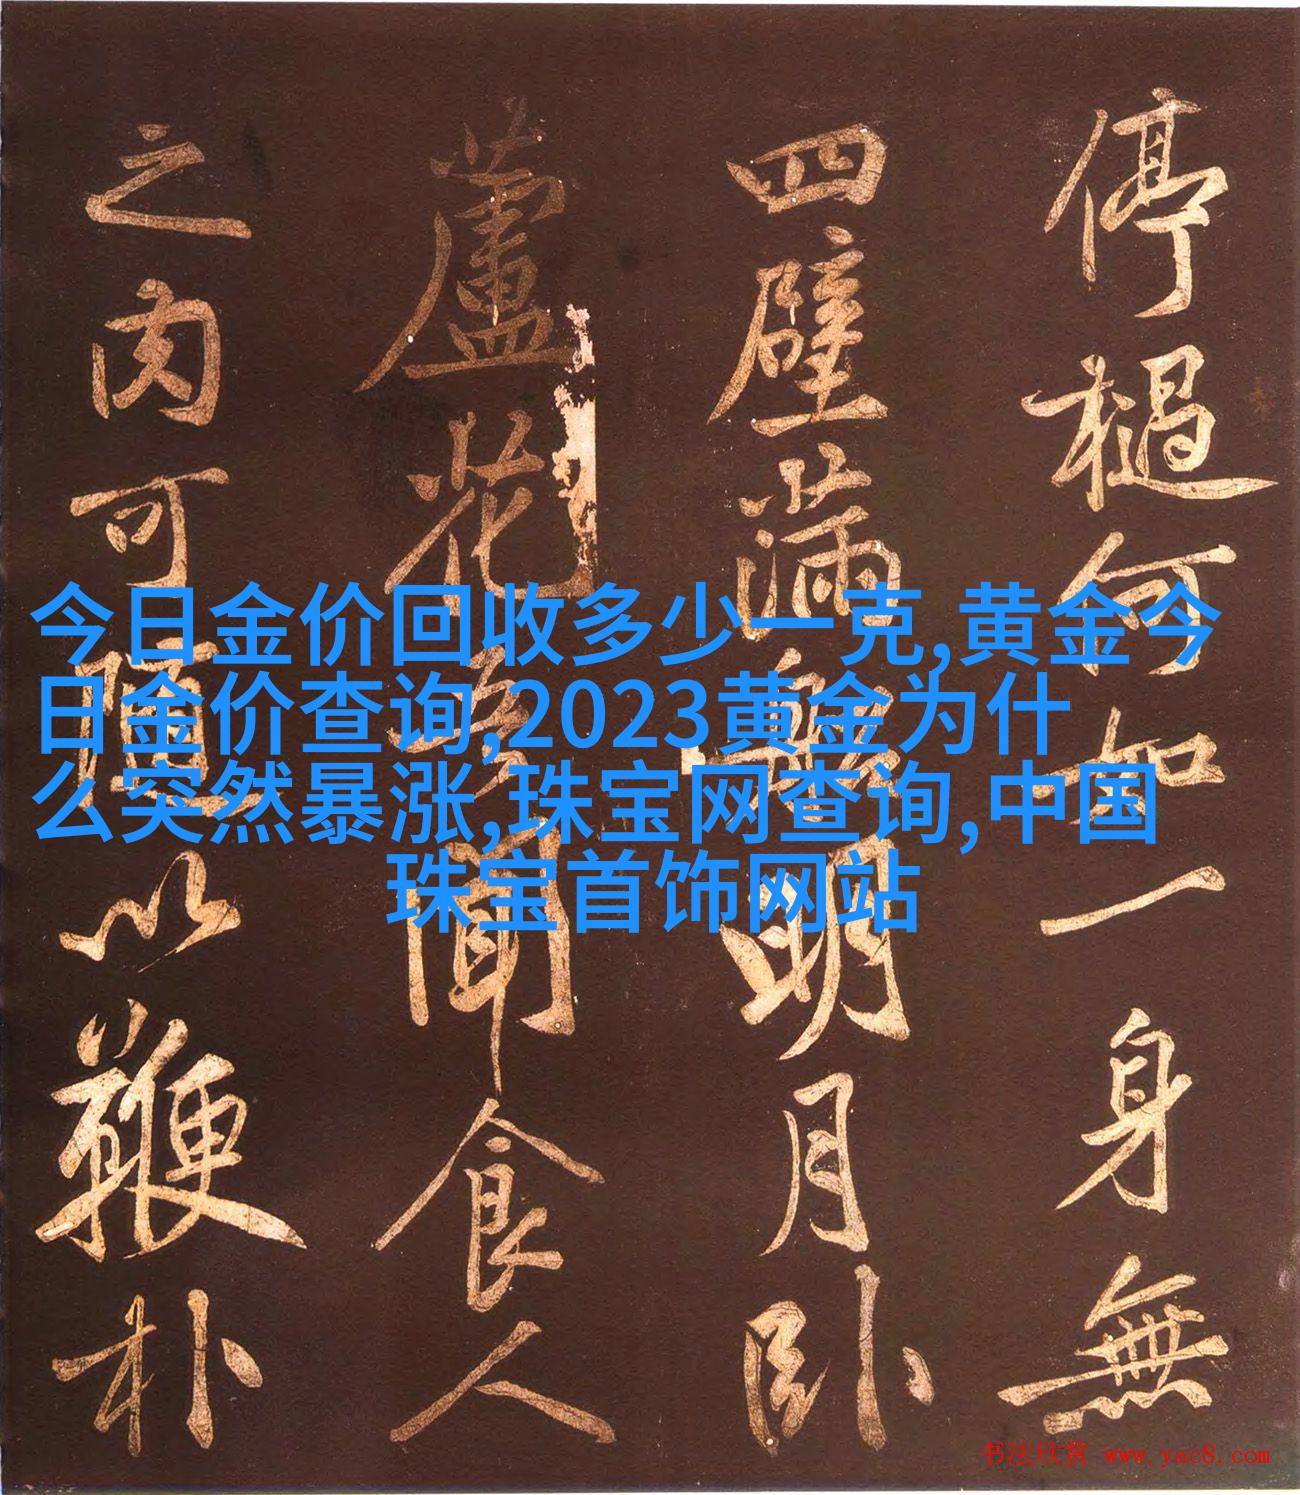 停檛何如一身無
四壁滿明月卧
蘆花吾聞食人
之肉可隨以鞭朴
今日金价回收多少一克,黄金今
日金价查询,2023黄金为什
么突然暴涨,珠宝网查询,中国
珠宝首饰网站
书法欣赏 www.yac8.com